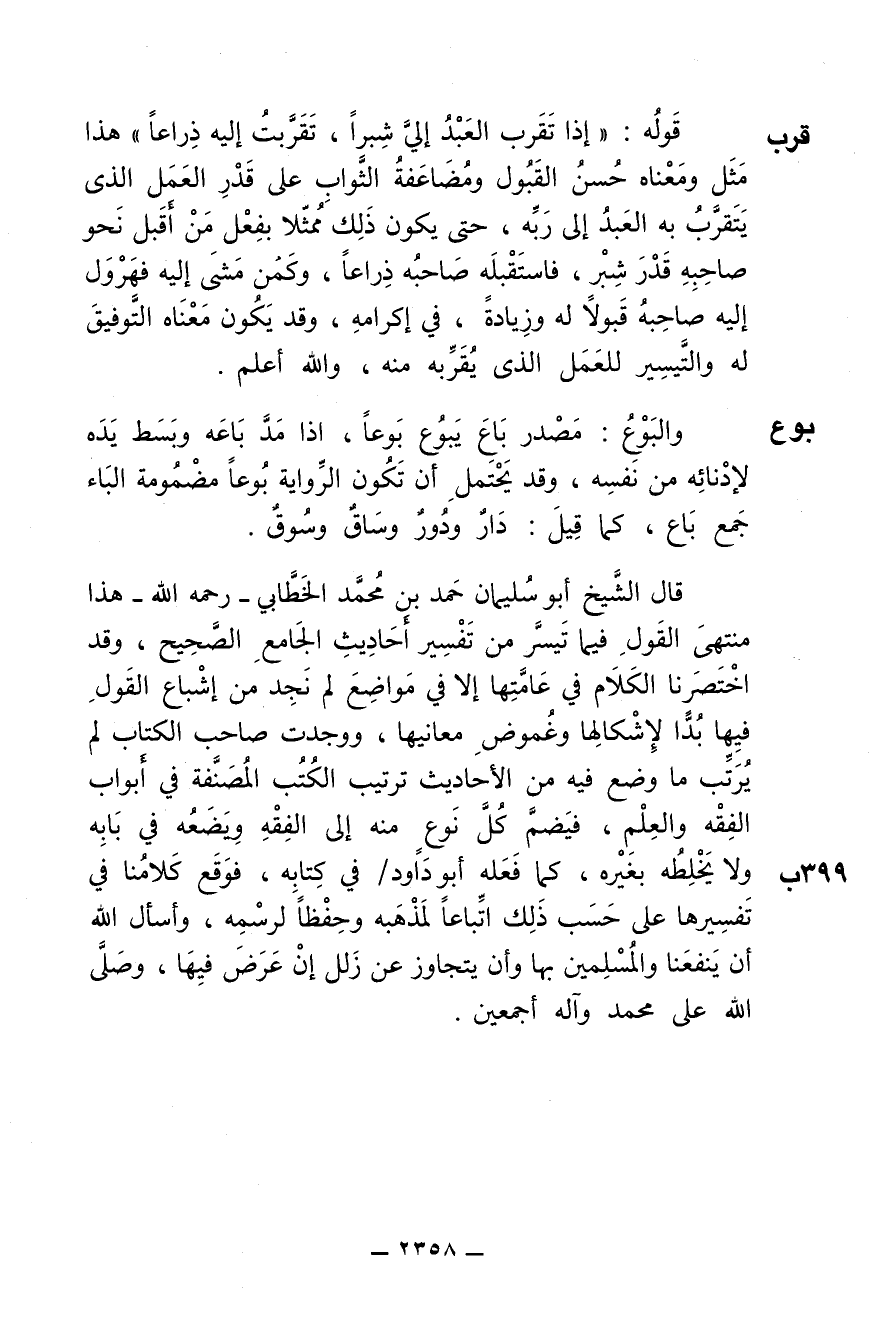 قرب قَولُه : « إذا تَقَرب العَبْدُ إليَّ شِبراً ، تَقَرَّبتُ إليه ذِراعاً » هذا
مَثَل ومَعْناه حُسنُ القَبُول ومُضَاعَفةُ الثَّوابِ على قَدْرِ العَمَل الذى
يَتَقرَّبُ به العَبدُ إلى رَبِّه ، حتى يكون ذَلِك مُمثّلا بفِعْل مَنْ أَقبل نَحو
صاحِبِهِ قَدْرَ شِبْر ، فاستَقْبلَه صَاحبُه ذِراعاً ، وكَمَن مَشىَ إليه فهَرْوَل
إليه صاحِبهُ قَبولاً له وزِيادةً ، في إكرامهِ ، وقد يَكُون مَعْناه التَّوفيقَ
له والتَّيسِير للعَمَل الذى يُقَرِّبه منه ، والله أعلم .
بوع والبَوْعُ : مَصْدر بَاعَ يَبوُع بَوعاً ، اذا مَدَّ بَاعَه وبَسَط يَدَه
لإدْنائِه من نَفسِه ، وقد يَحْتَملِ أن تَكُون الرِّواية بُوعاً مضْمُومة البَاء
جَمع بَاع ، كما قِيلَ : دَارٌ ودُورٌ وسَاقٌ وسُوقٌ .
قال الشَّيخ أبو سُليمان حَمد بن مُحمَّد الخَطَّابي ـ رحمه الله ـ هذا
منتهىَ القَولِ فيما تَيسَّر من تَفْسِير أَحَاديثِ الجَامعِ الصَّحِيح ، وقد
اخْتَصَرنا الكَلَام في عَامَّتِها إلا في مَواضِعَ لم نَجِد من إشْباع القَولِ
فيِها بُدًّا لإِشْكالِها وغُموضِ معانيها ، ووجدت صاحب الكتاب لم
يُرَتِّب ما وضع فيه من الأحاديث ترتيب الكُتُب المُصَنَّفة في أَبواب
الفِقْه والعِلْم ، فيَضمَّ كُلَّ نَوع منه إلى الفِقْهِ ويَضَعُه في بَابِه
٣٩٩ب ولا يَخْلِطُه بغَيْره ، كما فَعَله أبو دَاود/ في كِتابِه ، فوَقَع كَلامُنا في
تَفسِيرها على حَسَب ذَلِك اتِّباعاً لمَذْهَبه وحِفْظاً لرسْمِه ، وأسأل الله
أن يَنفعَنا والمُسْلِمين بها وأن يتجاوز عن زَلل إنْ عَرَضَ فيِهَا ، وصَلَّى
الله على محمد وآله أجمعين .
ـ ٢٣٥٨ ـ